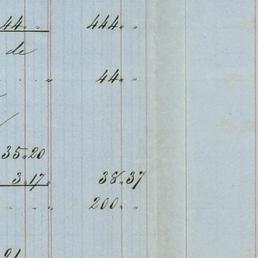 44 " " 444 " "
de
" " 44 " "
35 " 20
3 " 17 " 38 " 37
" " 200 " "
21